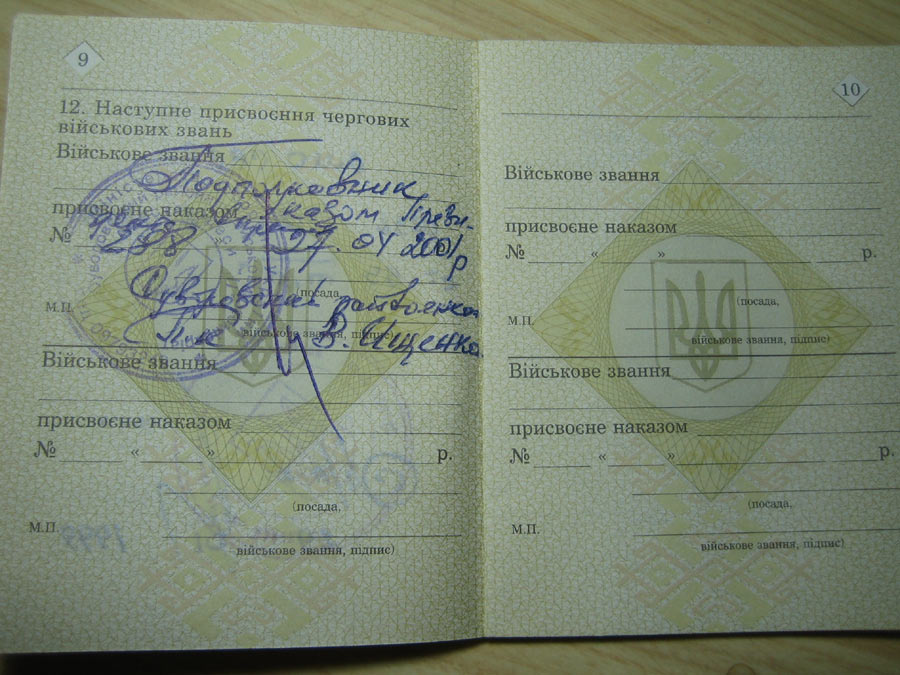 9
12. Наступне присвоєння чергових
військових звань
Військове звання
Подполковник
присвоєне наказом Указом Прези-
№ 298 " 27. 04 2001 р
(посада,
Суворовский райвоенком
М.П.
військове звання, підпис)
В. Ищенко
Військове звання
присвоєне наказом
№ « » р.
(посада,
М.П.
військове звання, підпис)
10
Військове звання
присвоєне наказом
№ « » р.
(посада,
М.П.
військове звання, підпис)
Військове звання
присвоєне наказом
№ « » р.
(посада,
М.П.
військове звання, підпис)